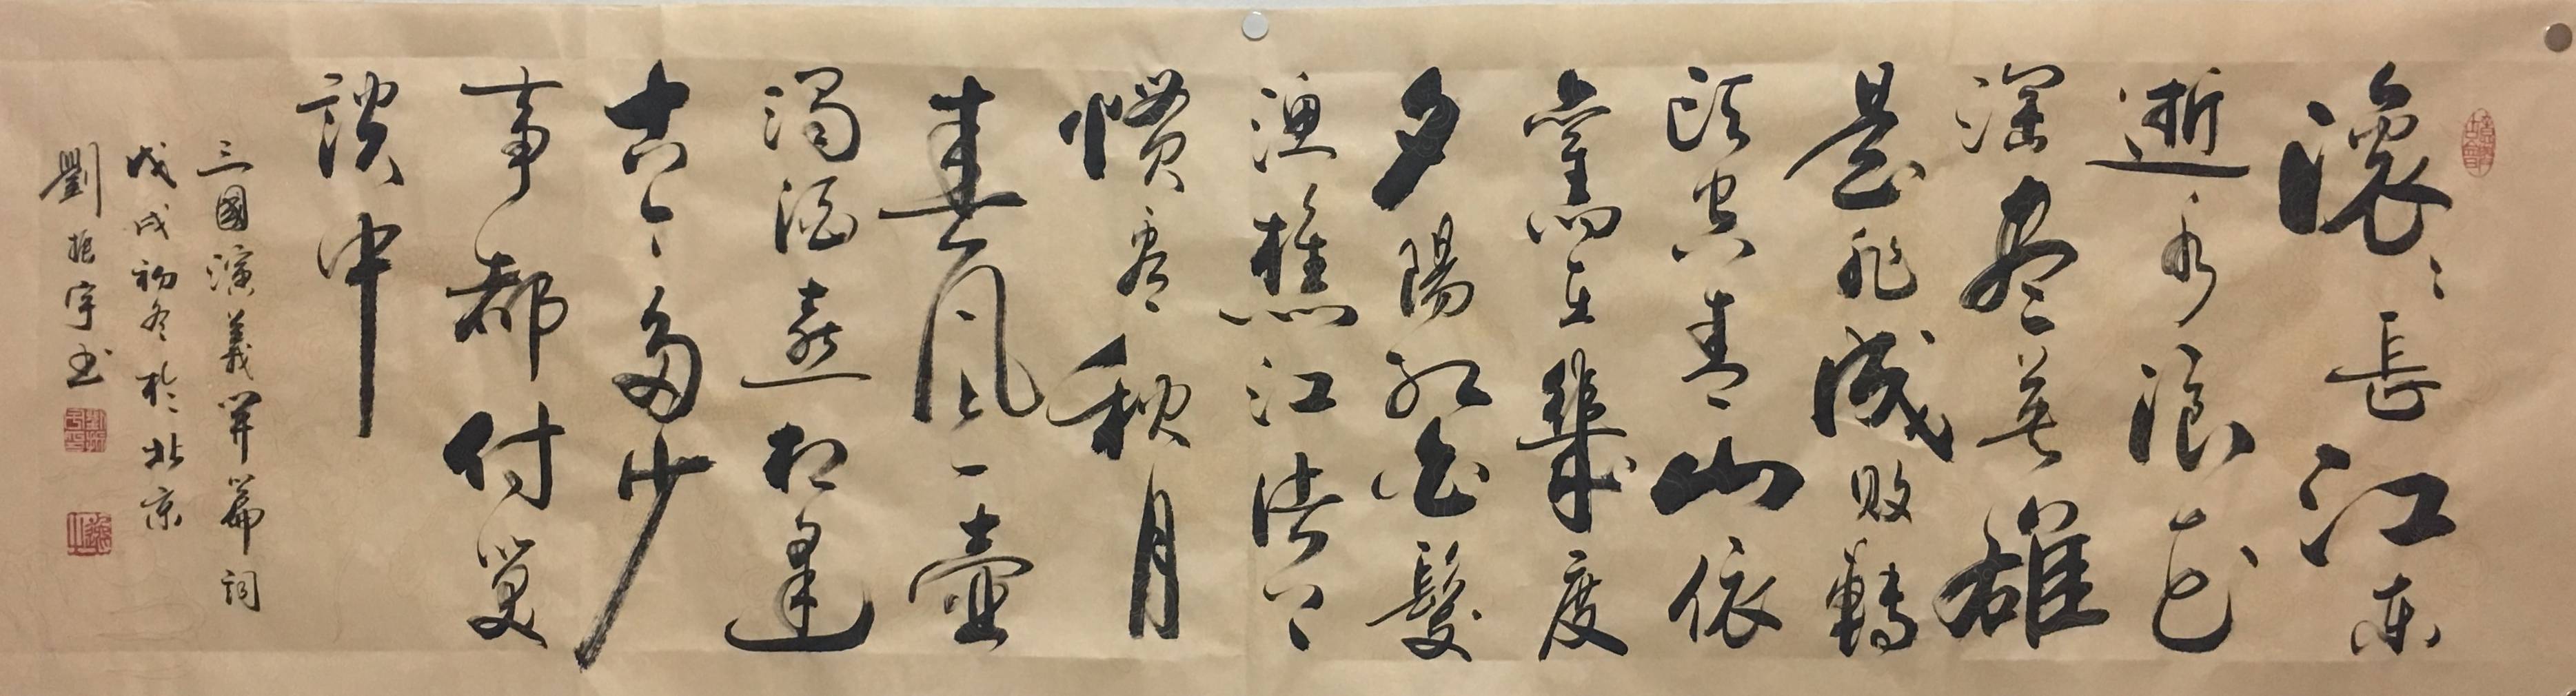 滚滚長江东
逝水浪花
淘尽英雄
是非成敗轉
頭空青山依
舊在幾度
夕陽紅白髮
漁樵江渚上
慣看秋月
春風一壺
濁酒喜相逢
古今多少
事都付笑
談中
三國演義開篇詞
戊戌初冬於北京
劉振宇书